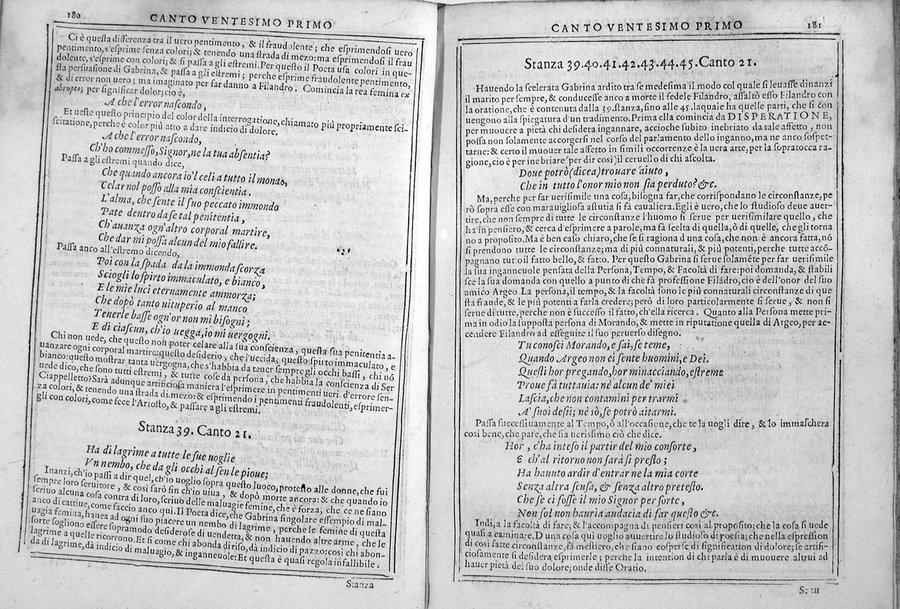 180 CANTO VENTESIMO PRIMO
Ci è questa differenza tra il uero pentimento, & il fraudolente; che esprimendosi uero
pentimento, s'esprime senza colori; & tenendo una strada di mezo: ma esprimendosi il frau
dolente, s'esprime con colori; & si passa a gli estremi. Per questo il Poeta usa colori in que-
sta persuasione di Gabrina, & passa a gli estremi; perche esprime fraudolente pentimento,
& di error non uero; ma imaginato per far danno a Filandro. Comincia la rea femina ex
abrupto; per significar dolor; cio è,
A che l'error nascondo,
Et ueste questo principio del color della interrogatione, chiamato più propriamente sci-
scitatione, perche è color più atto a dare indicio di dolore.
A che l'error nascondo,
Ch'ho commesso, Signor, ne la tua absentia?
Passa a gli estremi quando dice,
Che quando ancora io'l celi a tutto il mondo,
Celar nol posso alla mia conscientia.
L'alma, che sente il suo peccato immondo
Pate dentro da se tal penitentia,
Ch'auanza ogn'altro corporal martire,
Che dar mi possa alcun del mio fallire.
Passa anco all'estremo dicendo,
Poi con la spada da la immonda scorza
Sciogli lo spirto immaculato, e bianco,
E le mie luci eternamente ammorza;
Che dopò tanto uituperio al manco
Tenerle basse ogn'or non mi bisogni;
E di ciascun, ch'io uegga, io mi uergogni.
Chi non uede, che questo non poter celare alla sua conscientia, questa sua penitentia a-
uanzare ogni corporal martire: questo desiderio, che l'uccida, questo spirto immaculato, e
bianco: questo mostrar tanta uergogna, che s'habbia da tener sempre gli occhi bassi, chi nō
uede dico, che sono tutti estremi, & tutte cose da persona, che habbia la conscienza di Ser
Ciappelletto? Sarà adunque artificiosa maniera l'esprimere in pentimenti ueri d'errore sen-
za colori, & tenendo una strada di mezo: & esprimendo i pentimenti fraudolenti, esprimer-
gli con colori, come fece l'Ariosto, & passare a gli estremi.
Stanza 39. Canto 21.
Ha di lagrime a tutte le sue uoglie
Vn nembo, che da gli occhi al sen le pioue;
Inanzi, ch'io passi a dir quel, ch'io uoglio sopra questo luoco, protesto alle donne, che fui
sempre loro seruitore, & così sarò fin ch'io uiua, & dopò morte ancora: & che quando io
scriuo alcuna cosa contra di loro, scriuo delle maluagie femine, che è forza, che ce ne siano
anco di cattiue, come faccio anco qui. Il Poeta dice, che Gabrina singolare essempio di mal-
uagia femina, hauea ad ogni suo piacere un nembo di lagrime, perche le femine di questa
sorte sogliono essere sopramodo desiderose di uendetta, & non hauendo altre arme, che le
lagrime a quelle ricorrono. Et si come chi abonda di riso, dà indicio di pazzo: così chi abon-
da di lagrime, dà indicio di maluagio, & inganneuole: Et questa è quasi regola infallibile.
Stanza
CANTO VENTESIMO PRIMO 181
Stanza 39.40.41.42.43.44.45. Canto 21.
Hauendo la scelerata Gabrina ardito tra se medesima il modo col quale si leuasse dinanzi
il marito per sempre, & conducesse anco a morte il fedele Filandro, assaltò esso Filandro con
la oratione, che è contenuta dalla 39. stanza, fino alle 45. laquale ha quelle parti, che si con
uengono alla spiegatura d'un tradimento. Prima ella comincia da DISPERATIONE,
per muouere a pietà chi desidera ingannare, accioche subito inebriato da tale affetto, non
possa non solamente accorgersi nel corso del parlamento dello inganno, ma ne anco sospet-
tarne: & certo il muouer tale affetto in simili occorrenze è la uera arte, per la sopratocca ra-
gione, cio è per inebriare (per dir così) il ceruello di chi ascolta.
Doue potrò (dicea) trouare aiuto,
Che in tutto l'onor mio non sia perduto? &c.
Ma, perche per far uerisimile una cosa, bisogna far, che corrispondano le circonstanze, pe
rò sopra esse con marauigliosa astutia si fa caualiera. Egli è uero, che lo studioso deue auer-
tire, che non sempre di tutte le circonstanze l'huomo si serue per uerisimilare quello, che
ha in pensiero, & cerca d'esprimere a parole, ma fa scelta di quella, ò di quelle, che gli torna
no a proposito. Ma è ben caso chiaro, che se si ragiona d'una cosa, che non è ancora fatta, nō
si prendono tutte le circonstanze; ma di più connaturali, & più potenti, perche tutte accō-
pagnano tutto il fatto bello, & fatto. Per questo Gabrina si serue solamēte per far uerisimile
la sua inganneuole pensata della Persona, Tempo, & Facoltà di fare: poi domanda, & stabili
sce la sua domanda con quello a punto di che fà professione Filādro, cio è dell'onor del suo
amico Argeo. La persona, il tempo, & la facoltà sono le più connaturali circonstanze di que
sta fiaude, & le più potenti a farla credere; però di loro particolarmente si serue, & non si
serue di tutte, perche non è successo il fatto, ch'ella ricerca. Quanto alla Persona mette pri-
ma in odio la supposta persona di Morando, & mette in riputatione quella di Argeo, per ac-
cendere Filandro ad esseguire il suo peruerso disegno.
Tu conosci Morando, e sai, se teme,
Quando Argeo non ci sente huomini, e Dei.
Questi hor pregando, hor minacciando, estreme
Proue fà tuttauia: nè alcun de' miei
Lascia, che non contamini per trarmi
A' suoi desii; nè sò, se potrò aitarmi.
Passa successiuamente al Tempo, ò all'occasione, che te la uogli dire, & lo immaschera
così bene, che pare, che sia uerissimo ciò che dice.
Hor, c'ha inteso il partir del mio consorte,
E ch'al ritorno non sarà si presto;
Ha hauuto ardir d'entrar ne la mia corte
Senza altra scusa, & senza altro pretesto.
Che se ci fosse il mio Signor per sorte,
Non sol non hauria audacia di far questo &c.
Indi, a la facoltà di fare; & l'accompagna di pensieri così al proposito; che la cosa si uede
quasi a caminare. D'una cosa qui uoglio auuertire lo studioso di poesia; che nella espression
di così fatte circonstanze, fà mestiero, che siano cosperse di signification di dolore; se artifi-
ciosamente si desidera esprimerle; perche la intention di chi parla è di muouere altrui ad
hauer pietà del suo dolore; onde disse Oratio.